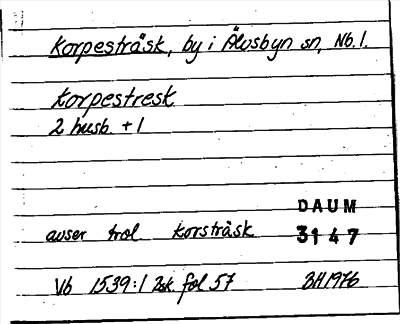 Korpesträsk, by i Älvsbyn sn, Nb. l.
Korpestresk
2 husb. + 1
DAUM
avser trol Korsträsk 3147
Vb 1539:1 2sk. fol 57 BH1976